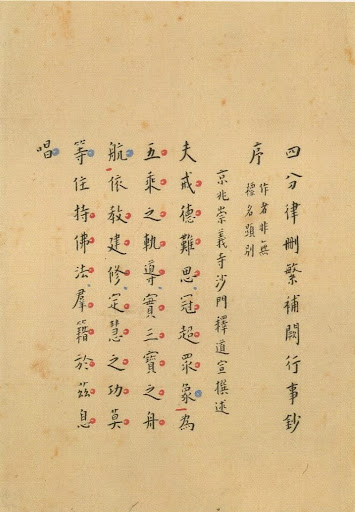 四分律刪繁補闕行事鈔
序 作者非無
標名顯別
京兆崇義寺沙門釋道宣撰述
夫戒德難思冠超眾象為
五乘之軌導實三寶之舟
航依教建修定慧之功莫
等住持佛法羣籍於茲息
唱